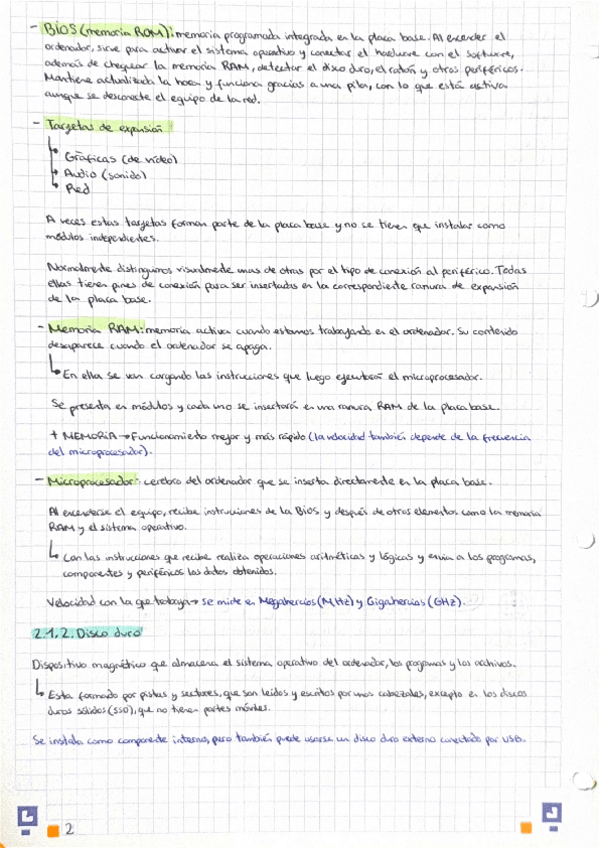 - BIOS (memoria ROM): memoria programada integrada en la placa base. Al encender el
ordenador, sirve para activar el sistema operativo y conectar el hardware con el software,
además de chequear la memoria RAM, detectar el disco duro, el ratón y otros periféricos.
Mantiene actualizada la hora y funciona gracias a una pila, con lo que está activa
aunque se desconecte el equipo de la red.
- Tarjetas de expansión
Gráficas (de vídeo)
Audio (sonido)
Red
A veces estas tarjetas forman parte de la placa base y no se tienen que instalar como
módulos independientes.
Normalmente distinguimos visualmente unas de otras por el tipo de conexión al periférico. Todas
ellas tienen pines de conexión para ser insertadas en la correspondiente ranura de expansión
de la placa base.
- Memoria RAM: memoria activa cuando estamos trabajando en el ordenador. Su contenido
desaparece cuando el ordenador se apaga.
En ella se van cargando las instrucciones que luego ejecutará el microprocesador.
Se presenta en módulos y cada uno se insertará en una ranura RAM de la placa base.
+ MEMORIA → Funcionamiento mejor y más rápido (la velocidad también depende de la frecuencia
del microprocesador).
- Microprocesador: cerebro del ordenador que se inserta directamente en la placa base.
Al encenderse el equipo, recibe instrucciones de la Bios y después de otros elementos como la memoria
RAM y el sistema operativo.
Con las instrucciones que recibe realiza operaciones aritméticas y lógicas y envia a los programas,
componentes y periféricos los datos obtenidos.
Velocidad con la que trabaja → se mide en Megahercios (MHz) y Gigahercios (GHz).
2.1.2. Disco duro
Dispositivo magnético que almacena el sistema operativo del ordenador, los programas y los archivos.
Esta formado por pistas y sectores, que son leídos y escritos por unos cabezales, excepto en los discos
duros sólidos (SSD), que no tienen partes móviles.
Se instala como componente interno, pero también puede usarse un disco duro externo conectado por USB.
2